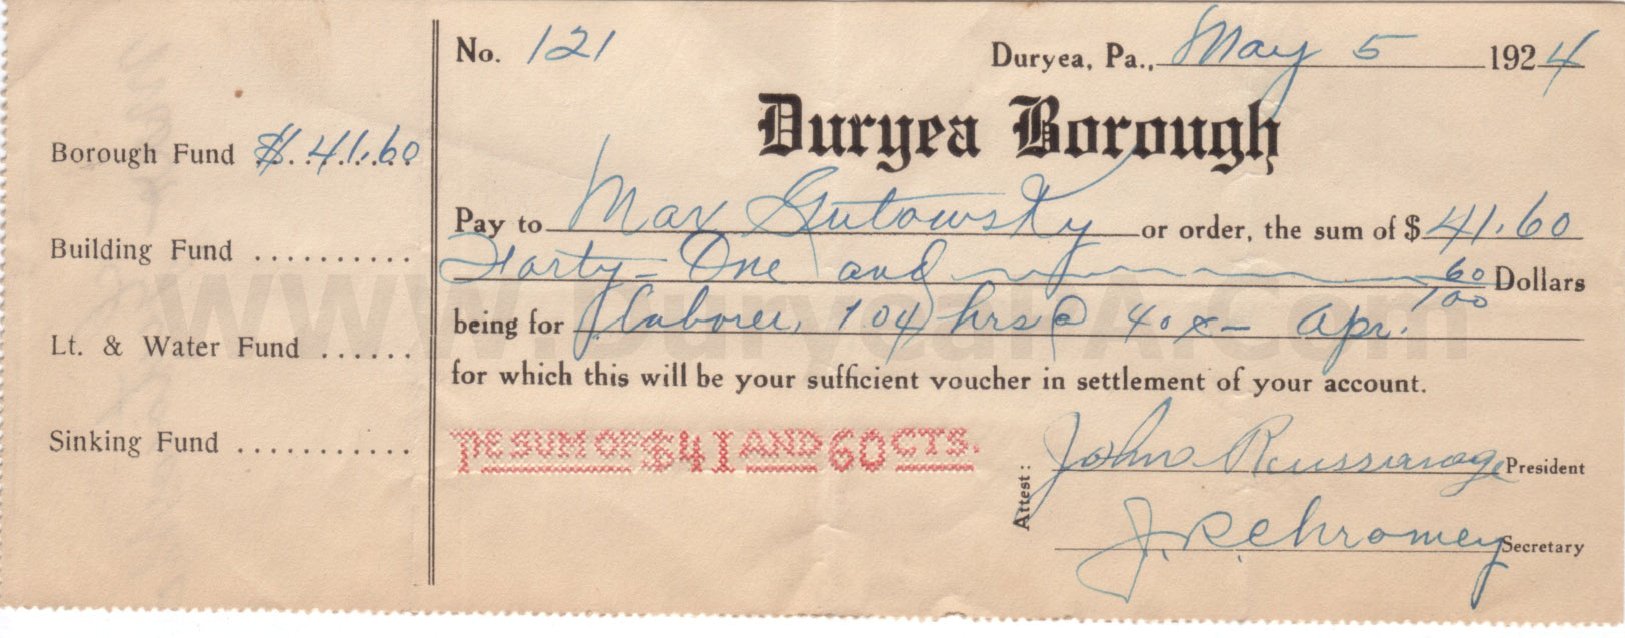 No. 121
Duryea, Pa., May 5 1924
Duryea Borough
Borough Fund $.41.60
Pay to Max Gutowsky or order, the sum of $ 41.60
Building Fund ..........
Forty-One and 60/100 Dollars
being for labor, 104 hrs @ 40 Apr.
Lt. & Water Fund ......
for which this will be your sufficient voucher in settlement of your account.
Sinking Fund ...........
THE SUM OF $41 AND 60 CTS.
Attest:
John President
J. R. Chromey Secretary
www.DuryeaPA.com